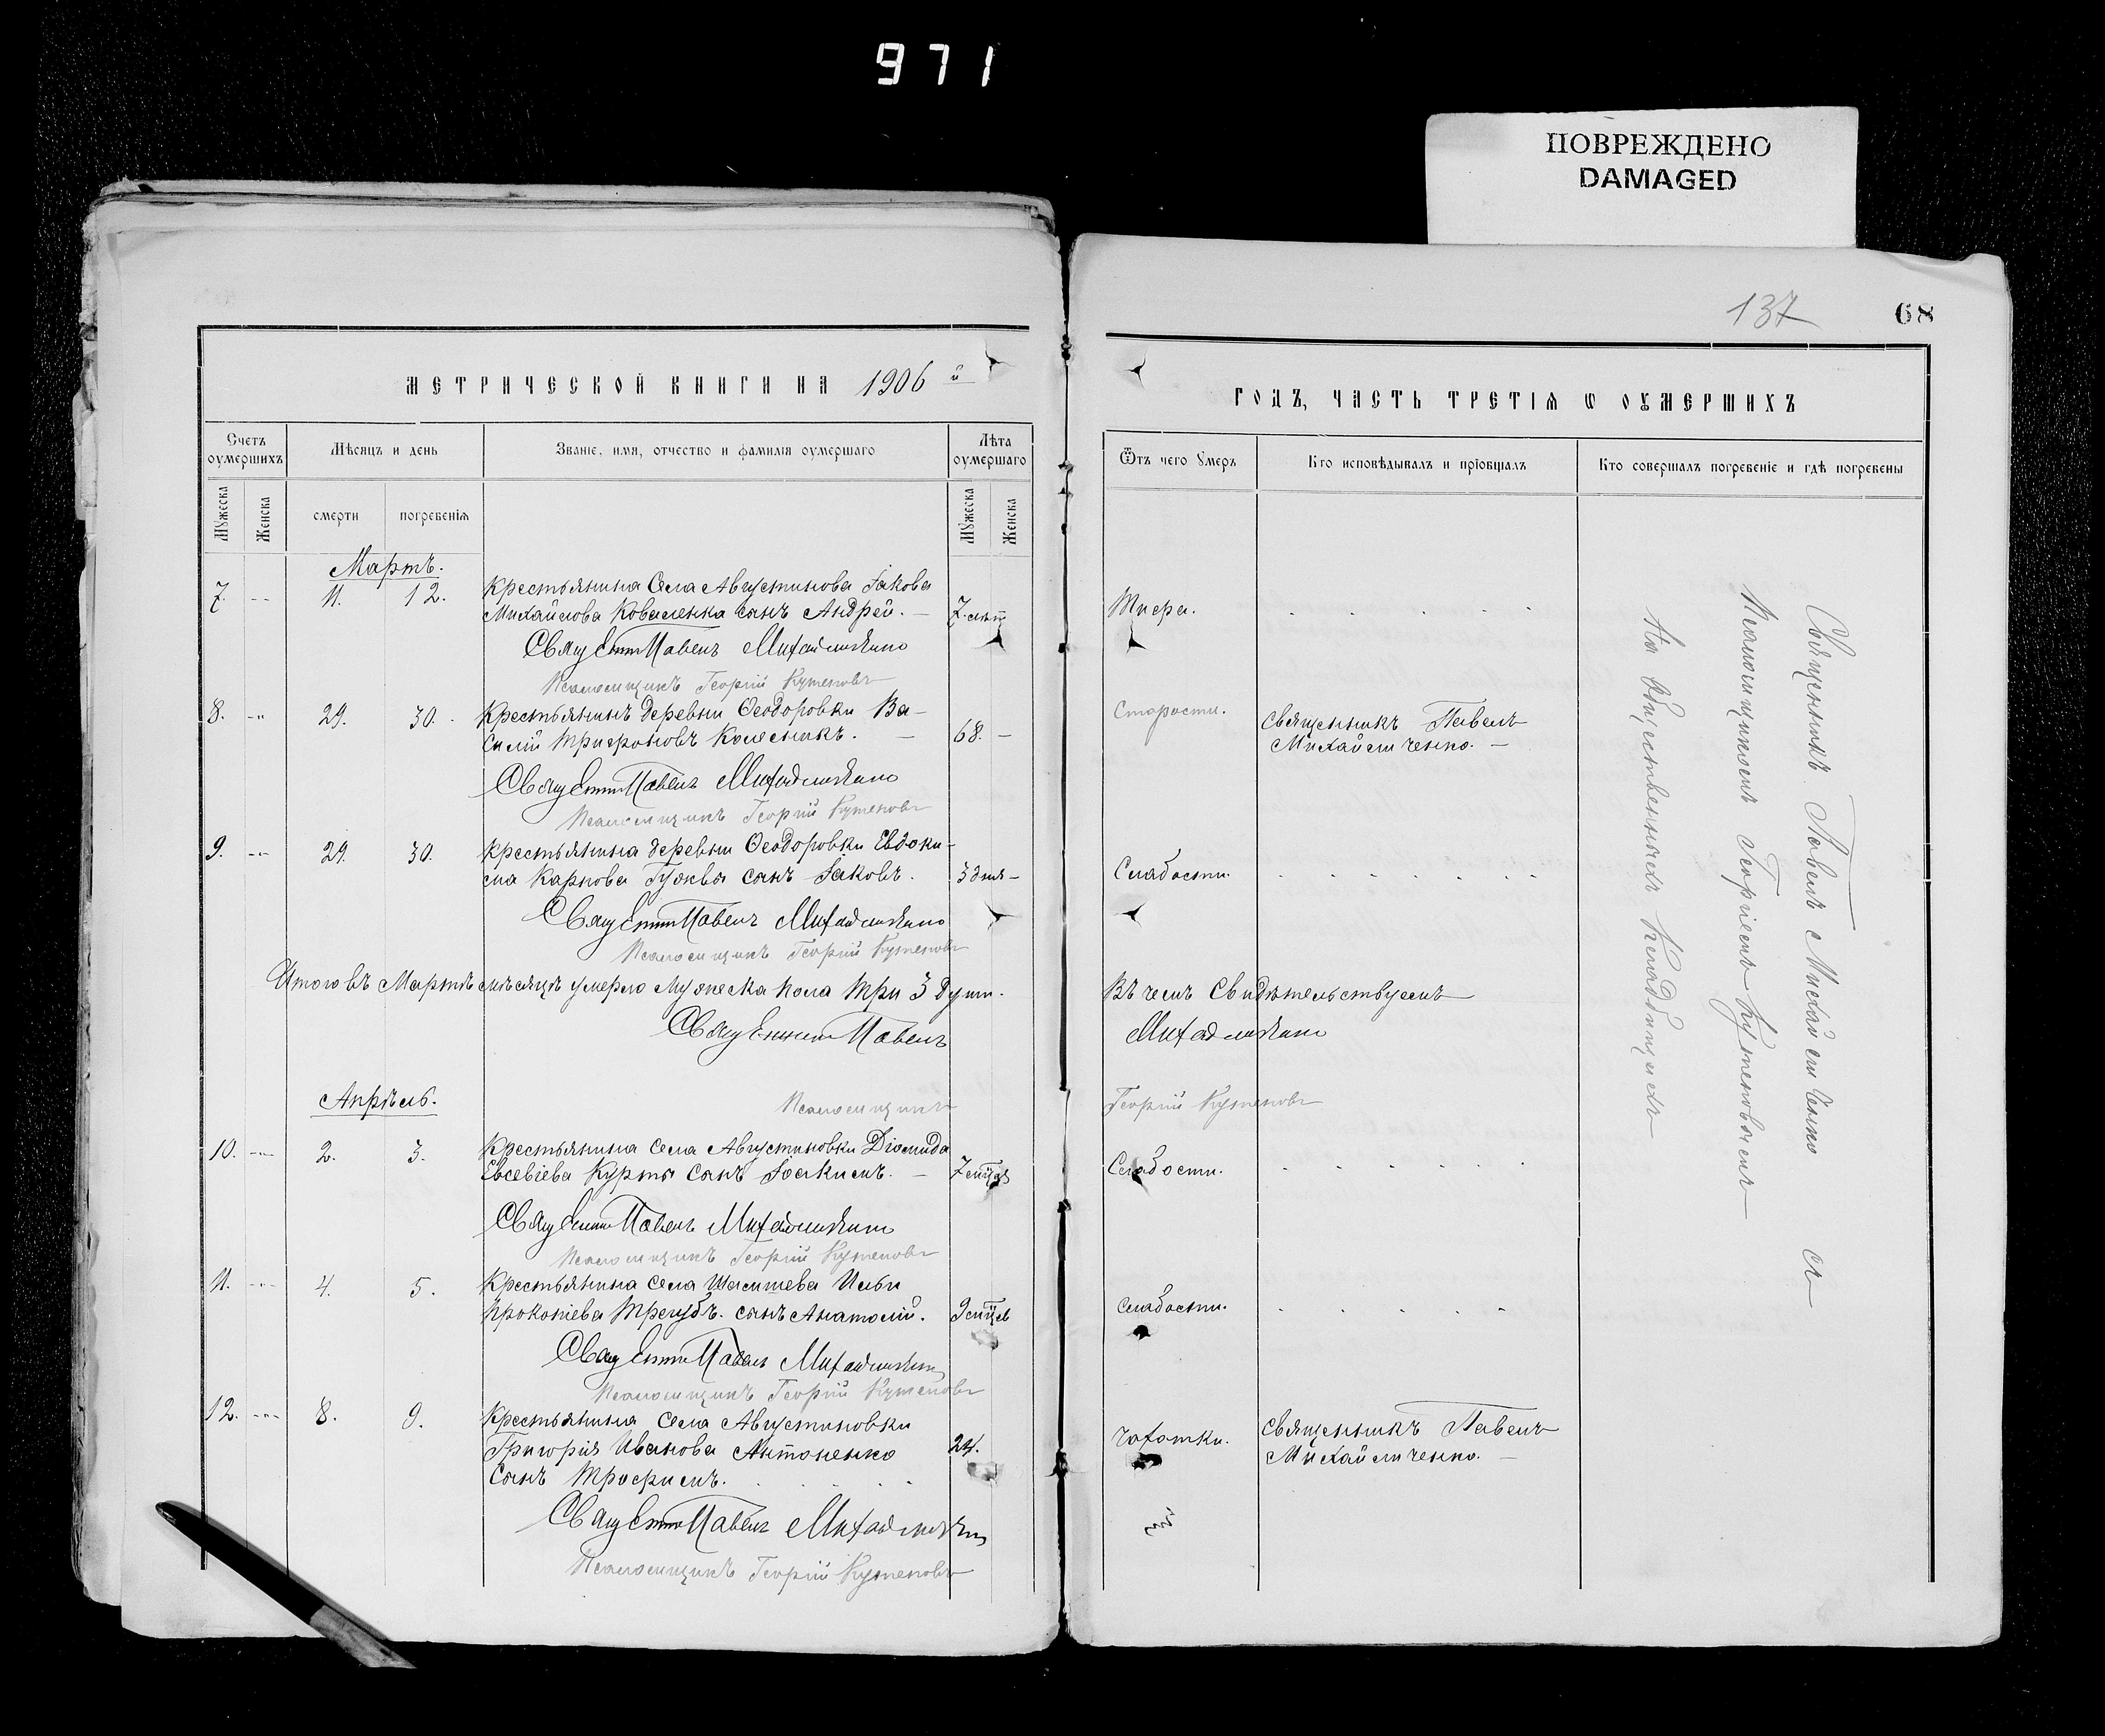 971
ПОВРЕЖДЕНО
DAMAGED
137
68
МЕТРИЧЕСКОЙ КНИГИ НА 1906 й
Счетъ оумершихъ
Мѣсяцъ и день
Званіе, имя, отчество и фамилія оумершаго
Лѣта оумершаго
Мужеска
Женска
смерти
погребенія
Мужеска
Женска
Мартъ.
7. 11. 12. Крестьянина Села Августинова Іакова
Михайлова Коваленка сынъ Андрей. 7 лѣт
Священникъ Павелъ Михайличенко
Псаломщикъ Георгій Кутеповъ
8. 29. 30. Крестьянинъ деревни Ѳеодоровки Ва-
силій Трифоновъ Колесникъ. 68.
Священникъ Павелъ Михайличенко
Псаломщикъ Георгій Кутеповъ
9. 29. 30. Крестьянина деревни Ѳеодоровки Евдоки-
ма Карпова Гужвы сынъ Іаковъ. 3 дня
Священникъ Павелъ Михайличенко
Псаломщикъ Георгій Кутеповъ
Итого въ Мартѣ мѣсяцѣ умерло мужеска пола три 3 души.
Священникъ Павелъ
Псаломщикъ
Апрѣль.
10. 2. 3. Крестьянина села Августиновки Діомида
Евсевіева Курты сынъ Іоакимъ. 7 мцѣв
Священникъ Павелъ Михайличенко
Псаломщикъ Георгій Кутеповъ
11. 4. 5. Крестьянина села Ильи
Прокопіева Трегубъ. сынъ Анатолій. 9 мцѣв
Священникъ Павелъ Михайличенко
Псаломщикъ Георгій Кутеповъ
12. 8. 9. Крестьянина села Августиновки
Григорія Иванова Антоненко 24.
сынъ Трофимъ.
Священникъ Павелъ Михайличенко
Псаломщикъ Георгій Кутеповъ
ГОДЪ, ЧАСТЬ ТРЕТІЯ Ѡ ОУМЕРШИХЪ
Ѿтъ чего умеръ
Кто исповѣдывалъ и пріобщалъ
Кто совершалъ погребеніе и гдѣ погребены
Тифа.
Старости. Священникъ Павелъ
Михайличенко.
Слабости.
Въ чемъ свидѣтельствуемъ
Михайличенко
Георгій Кутеповъ
Слабости.
Слабости.
Чахотки. Священникъ Павелъ
Михайличенко.
Священникъ Павелъ Михайличенко съ
Псаломщикомъ Георгіемъ Кутеповымъ
На Общественныхъ Кладбищахъ